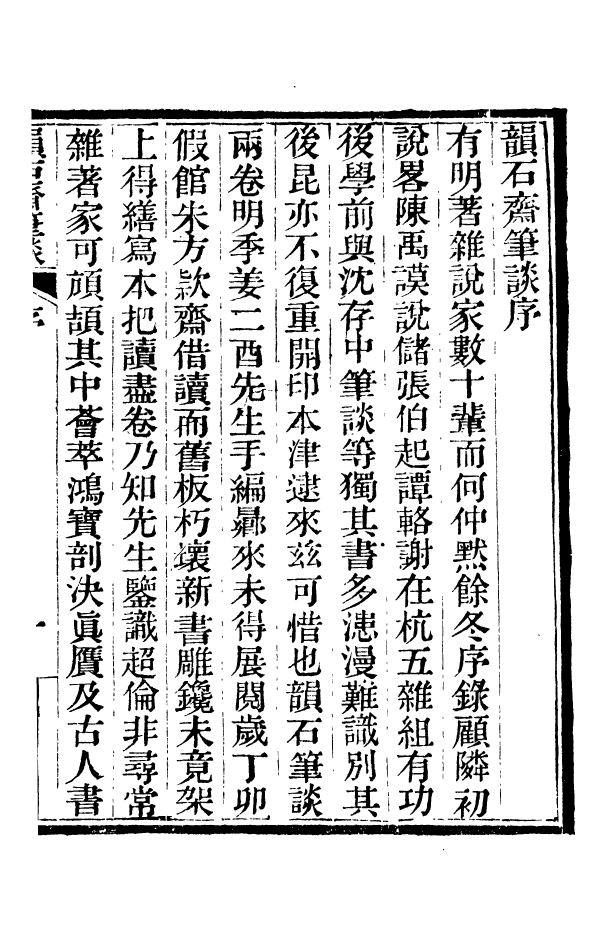 韻石齋筆談序
有明著雜說家數十輩而何仲黙餘冬序錄顧隣初
說畧陳禹謨說儲張伯起譚輅謝在杭五雜組有功
後學前與沈存中筆談等獨其書多漶漫難識別其
後昆亦不復重開印本津逮來玆可惜也韻石筆談
兩卷明季姜二酉先生手編曏來未得展閱歲丁卯
假館朱方欵齋借讀而舊板朽壞新書雕鑱未竟架
上得繕寫本把讀盡卷乃知先生鑒識超倫非尋常
雜著家可頏頡其中薈萃鴻寶剖決眞贋及古人書
韻石齋筆談
序
一